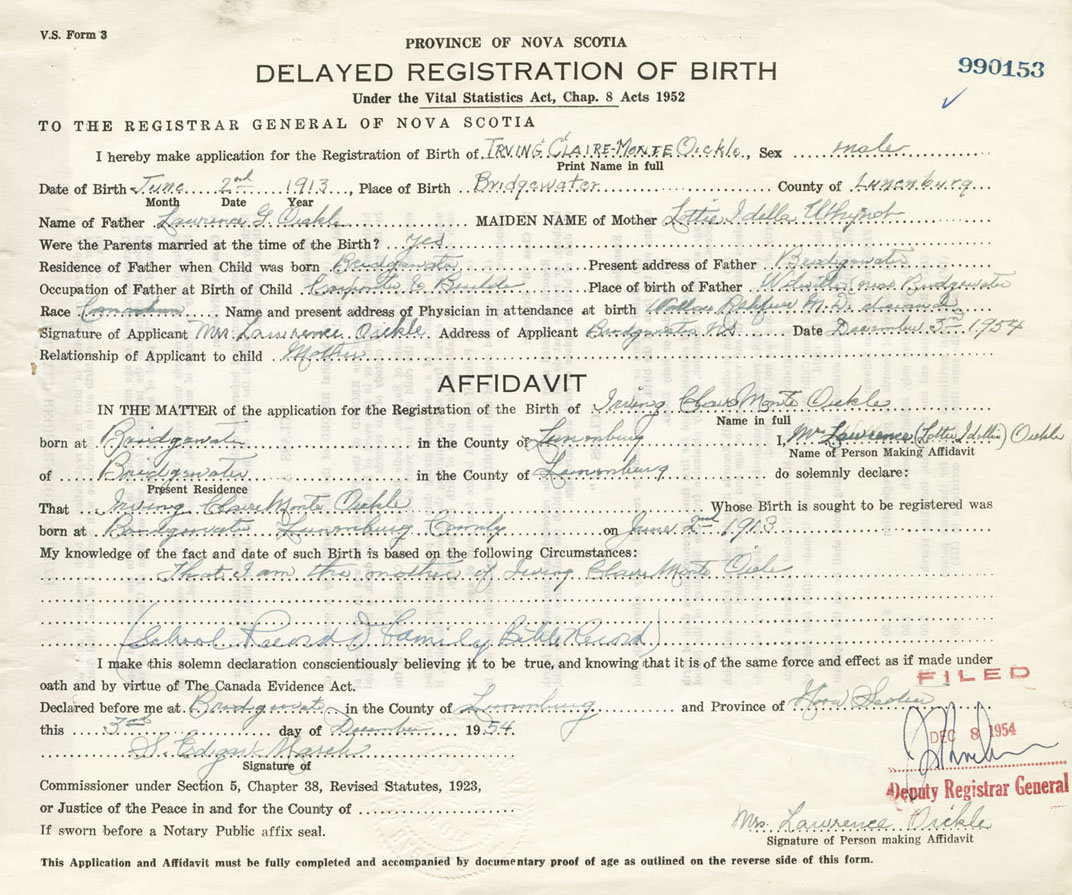 V.S. Form 3
PROVINCE OF NOVA SCOTIA
990153
DELAYED REGISTRATION OF BIRTH
Under the Vital Statistics Act, Chap. 8 Acts 1952
TO THE REGISTRAR GENERAL OF NOVA SCOTIA
I hereby make application for the Registration of Birth of IRVING CLAIRE-MONTE Oickle, Sex male
Print Name in full
Date of Birth June 2nd 1913, Place of Birth Bridgewater County of Lunenburg
Month Date Year
Name of Father Lawrence G. Oickle MAIDEN NAME of Mother Lottie Idella Whynot
Were the Parents married at the time of the Birth? yes
Residence of Father when Child was born Bridgewater Present address of Father Bridgewater
Occupation of Father at Birth of Child Carpenter & Place of birth of Father near Bridgewater
Race Name and present address of Physician in attendance at birth M.D.
Signature of Applicant Mrs. Lawrence Oickle Address of Applicant Bridgewater N.S. Date December 3rd 1954
Relationship of Applicant to child Mother
AFFIDAVIT
IN THE MATTER of the application for the Registration of the Birth of Irving Claire Monte Oickle
Name in full
born at Bridgewater in the County of Lunenburg I, Mrs Lawrence (Lottie Idella) Oickle
Name of Person Making Affidavit
of Bridgewater in the County of Lunenburg do solemnly declare:
Present Residence
That Irving Claire Monte Oickle Whose Birth is sought to be registered was
born at Bridgewater Lunenburg County on June 2nd 1913
My knowledge of the fact and date of such Birth is based on the following Circumstances:
That I am the mother of Irving Claire Monte
(School Record & Family Bible Record)
I make this solemn declaration conscientiously believing it to be true, and knowing that it is of the same force and effect as if made under
oath and by virtue of The Canada Evidence Act.
FILED
Declared before me at Bridgewater in the County of Lunenburg and Province of Nova Scotia
this 3rd day of December 1954
DEC 8 1954
S. Edgar March
Signature of
Commissioner under Section 5, Chapter 38, Revised Statutes, 1923,
Deputy Registrar General
or Justice of the Peace in and for the County of
Mrs. Lawrence Oickle
If sworn before a Notary Public affix seal.
Signature of Person making Affidavit
This Application and Affidavit must be fully completed and accompanied by documentary proof of age as outlined on the reverse side of this form.